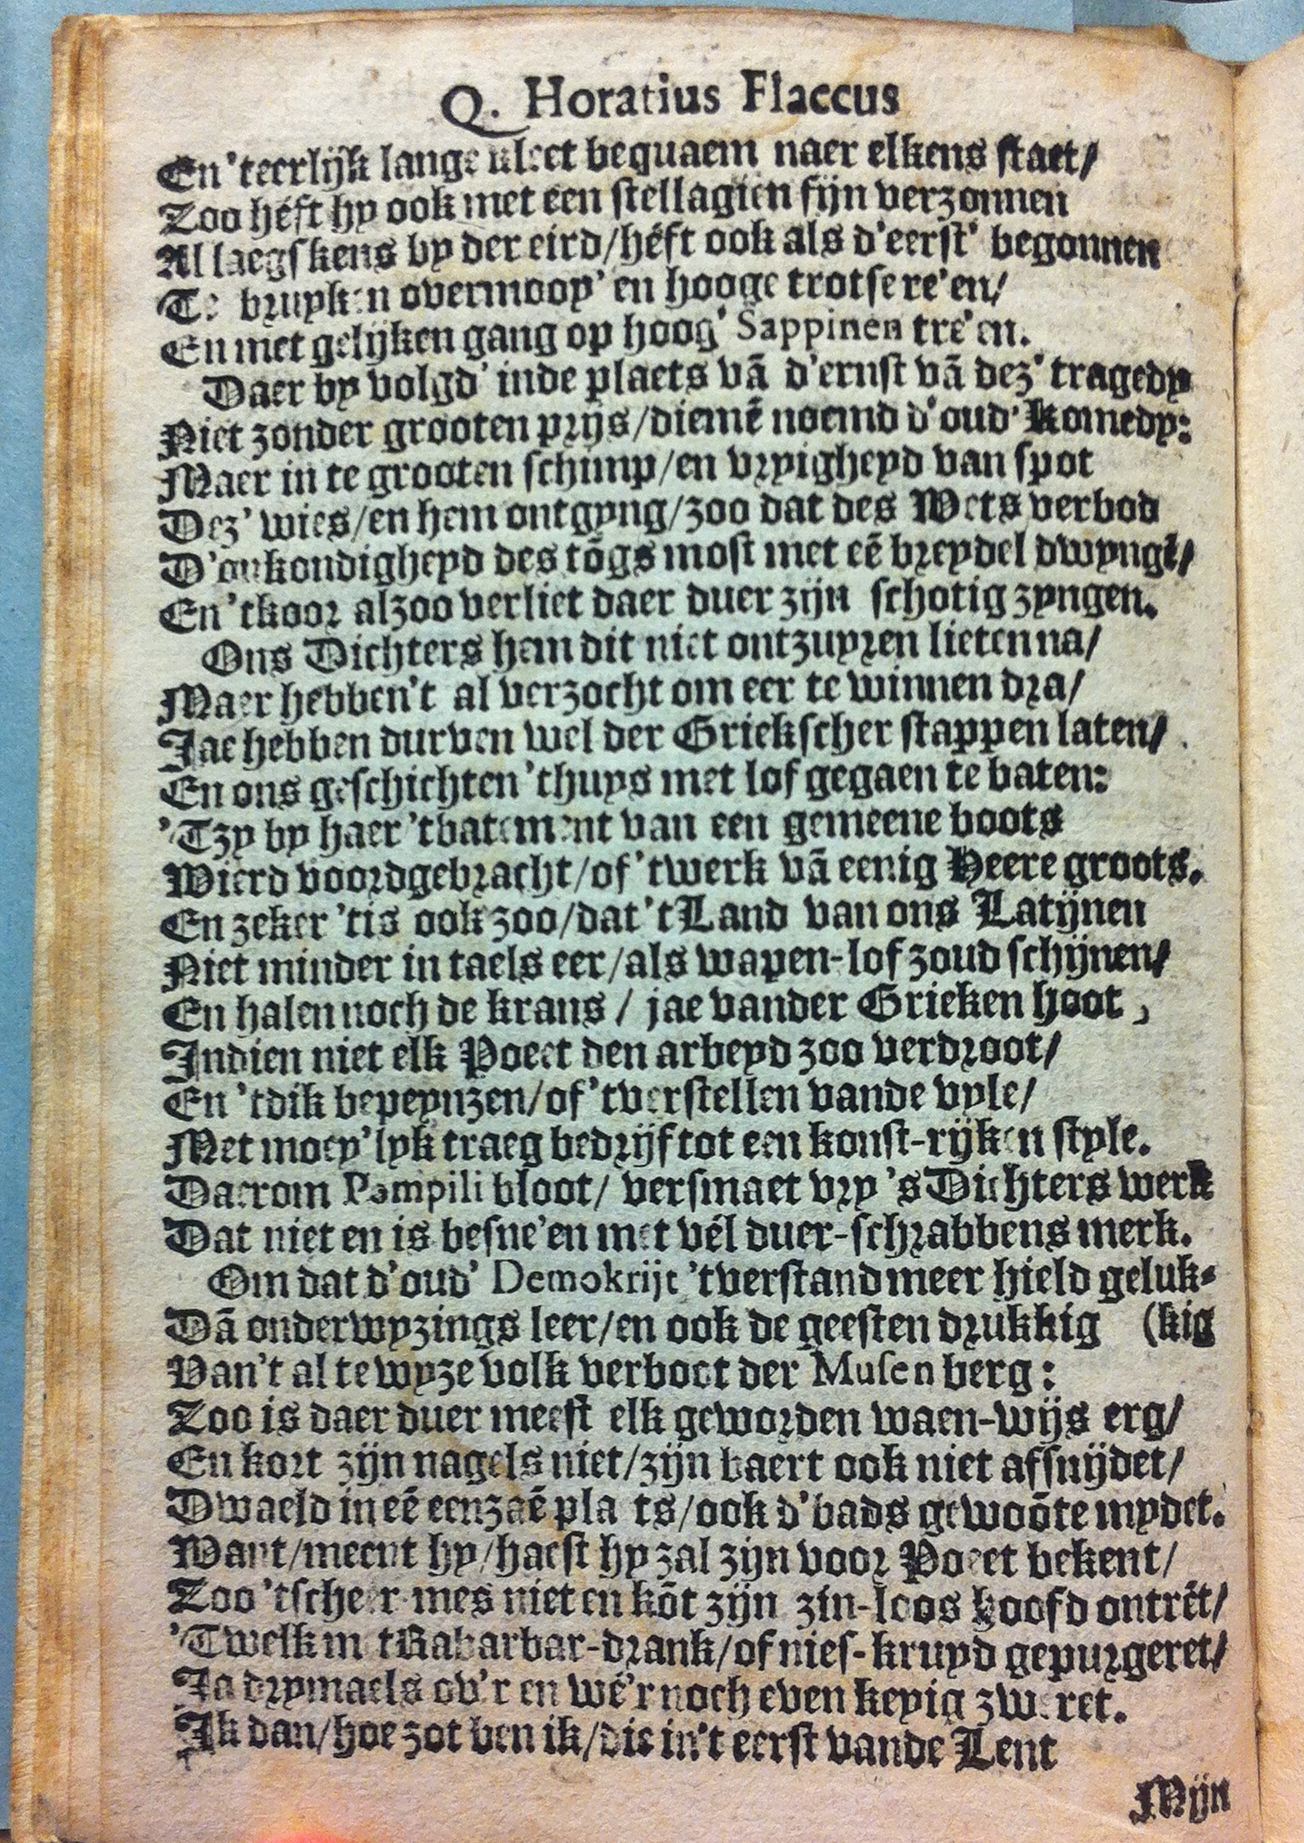 Q. Horatius Flaccus
En 'teerlijk lange kleet bequaem naer elkens staet/
Zoo héft hy ook met een stellagien fijn verzonnen
Al laegskens by der eird/héft ook als d'eerst' begonnen
Te bruyken overmooy' en hooge trotse re'en/
En met gelijken gang op hoog' Sappinen tre'en.
Daer by volgd' inde plaets vā d'ernst vā dez' tragedy
Niet zonder grooten prijs/diemē noemd d'oud' Komedy:
Maer in te grooten schimp/en vryigheyd van spot
Dez' wies/en hem ontgyng/zoo dat des Wets verbod
D'onkondigheyd des tōgs most met eē breydel dwyngē/
En 'tkoor alzoo verliet daer duer zijn schotig zyngen.
Ons Dichters hem dit niet ontzuyren lieten na/
Maer hebben't al verzocht om eer te winnen dra/
Jae hebben durven wel der Griekscher stappen laten/
En ons geschichten 'thuys met lof gegaen te baten:
'Tzy by haer 'tbatement van een gemeene boots
Wierd voordgebracht/of 'twerk vā eenig Heere groots.
En zeker 'tis ook zoo/dat 't Land van ons Latijnen
Niet minder in taels eer/als wapen-lof zoud schijnen/
En halen noch de krans / jae vander Grieken hoot,
Indien niet elk Poeet den arbeyd zoo verdroot/
En 'tdik bepeynzen/of 'tverstellen vande vyle/
Met moey'lyk traeg bedrijf tot een konst-rijken style.
Daerom Pompili bloot/ versmaet vry 's Dichters werk
Dat niet en is besne'en met vél duer-schrabbens merk.
Om dat d'oud' Demokrijt 'tverstand meer hield geluk-
Dā onderwyzings leer/en ook de geesten drukkig (kig
Van't al te wyze volk verboot der Musen berg:
Zoo is daer duer meest elk geworden waen-wijs erg/
En kort zijn nagels niet/zijn baert ook niet afsnijdet/
Dwaeld in eē eenzaē plaets/ook d'bads gewoōte mydet.
Want/meent hy/haest hy zal zijn voor Poeet bekent/
Zoo 'tscheer-mes niet en kōt zijn zin-loos hoofd ontrēt/
'Twelk met Rabarbar-drank/of nies-kruyd gepurgeret/
Ja drymaels ov'r en wé'r noch even keyig zweret.
Ik dan/hoe zot ben ik/die in't eerst vande Lent
Mijn